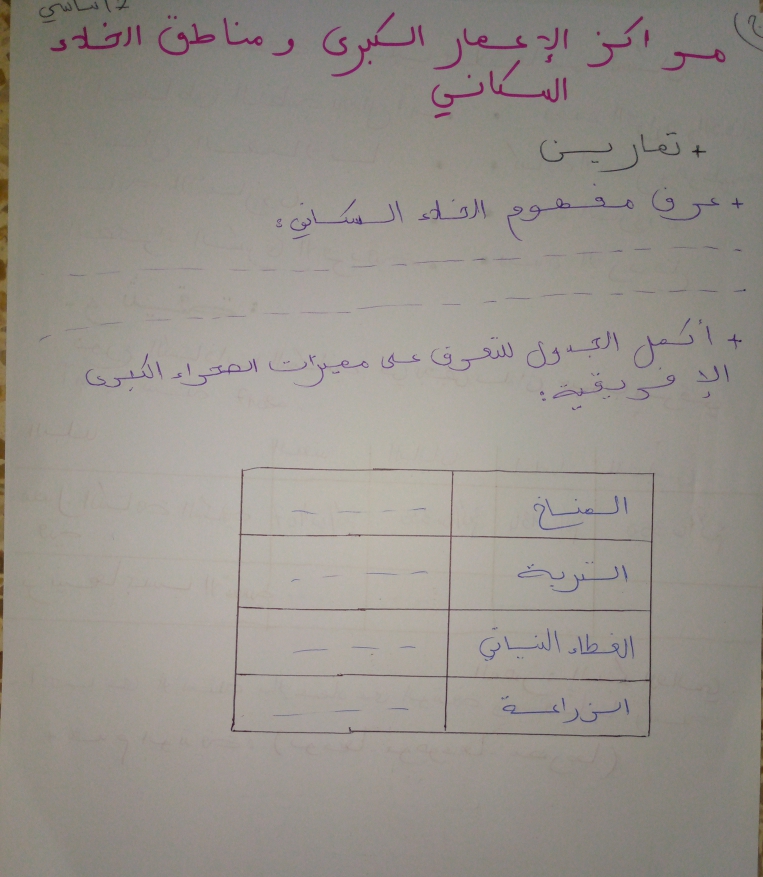 7 أساسي
مراكز الإعمار الكبرى و مناطق الخلاء
السكاني
+ تمارين
+ عرف مفهوم الخلاء السكاني:
+ أكمل الجدول للتعرف على مميزات الصحراء الكبرى
الإفريقية:
المناخ
التربة
الغطاء النباتي
الزراعة